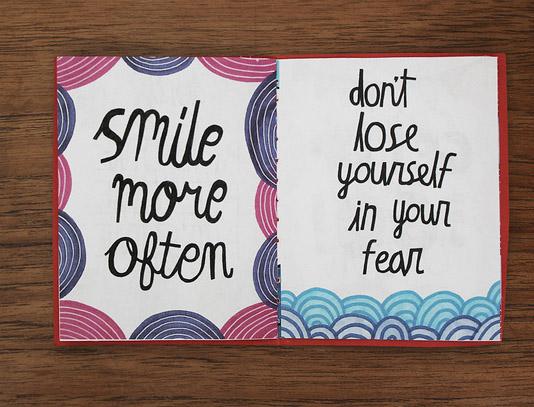 smile
more
often
don't
lose
yourself
in your
fear